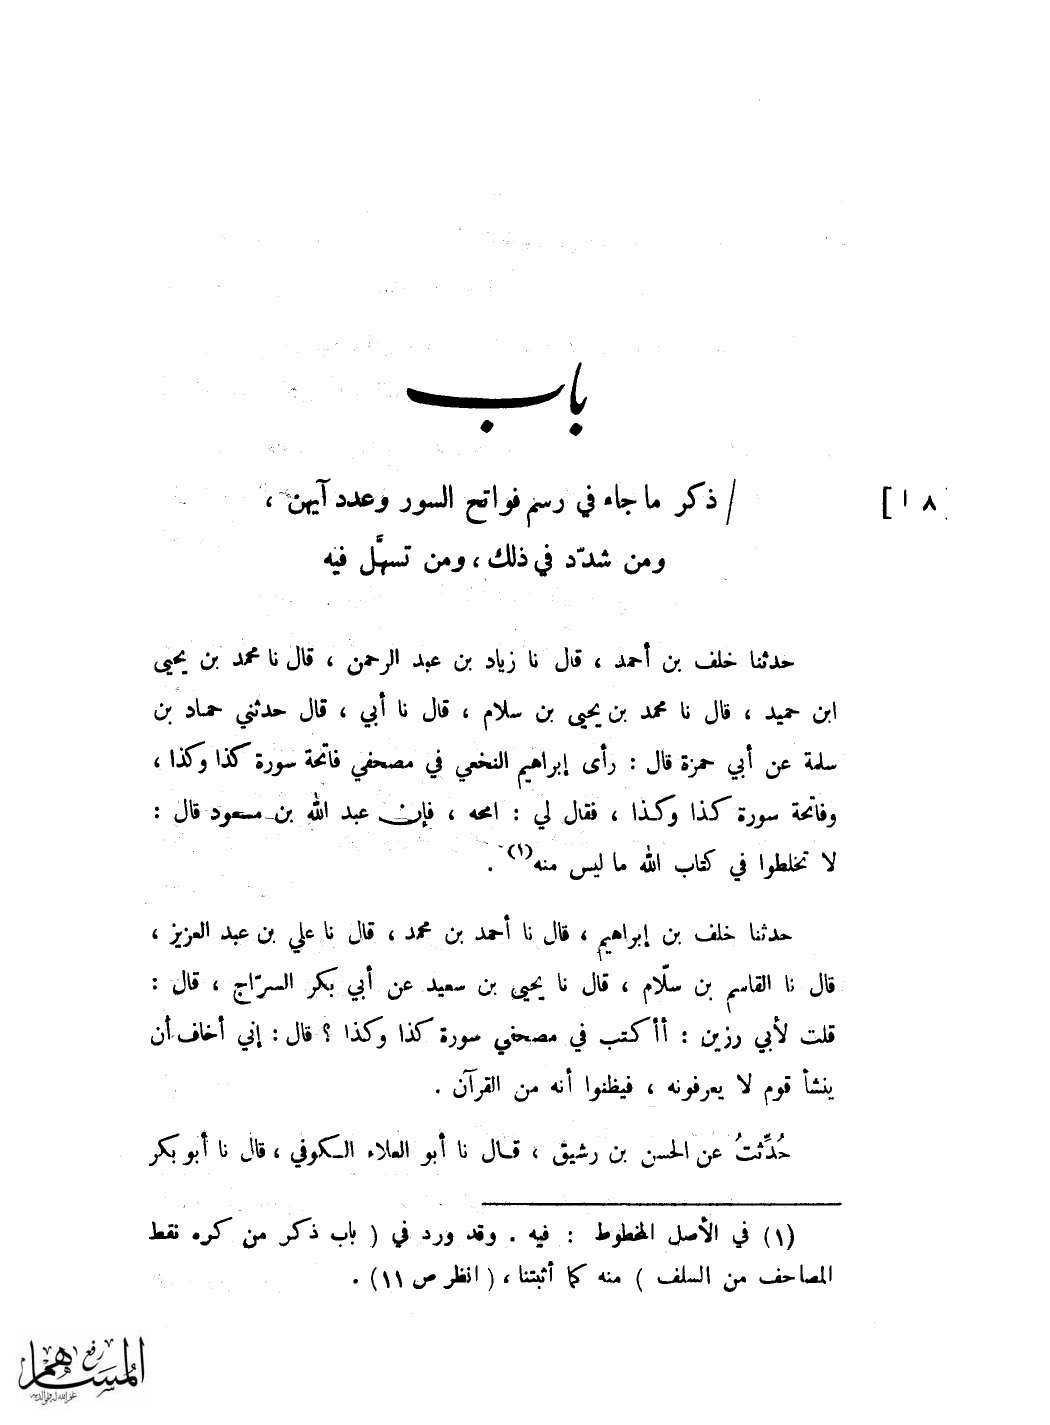 باب
/ ذكر ما جاء في رسم فواتح السور وعدد آيهن ،
[ ٨ ا
ومن شدّد في ذلك ، ومن تسهَّل فيه
حدثنا خلف بن أحمد ، قال نا زياد بن عبد الرحمن ، قال نا محمد بن يحيى
ابن حميد ، قال نا محمد بن يحيى بن سلام ، قال نا أبي ، قال حدثني حماد بن
سلمة عن أبي حمزة قال : رأى إبراهيم النخعي في مصحفي فاتحة سورة كذا وكذا ،
وفاتحة سورة كذا وكذا ، فقال لي : امحه ، فإن عبد الله بن مسعود قال :
لا تخلطوا في كتاب الله ما ليس منه(١) .
حدثنا خلف بن إبراهيم ، قال نا أحمد بن محمد ، قال نا علي بن عبد العزيز ،
قال نا القاسم بن سلّام ، قال نا يحيى بن سعيد عن أبي بكر السرّاج ، قال :
قلت لأبي رزين : أأكتب في مصحفي سورة كذا وكذا ؟ قال : إني أخاف أن
ينشأ قوم لا يعرفونه ، فيظنوا أنه من القرآن .
حُدِّثتُ عن الحسن بن رشيق ، قال نا أبو العلاء الكوفي ، قال نا أبو بكر
(١) في الأصل المخطوط : فيه . وقد ورد في ( باب ذكر من كره نقط
المصاحف من السلف ) منه كما أثبتنا ، ( انظر ص ١١) .
رفع
المساهم